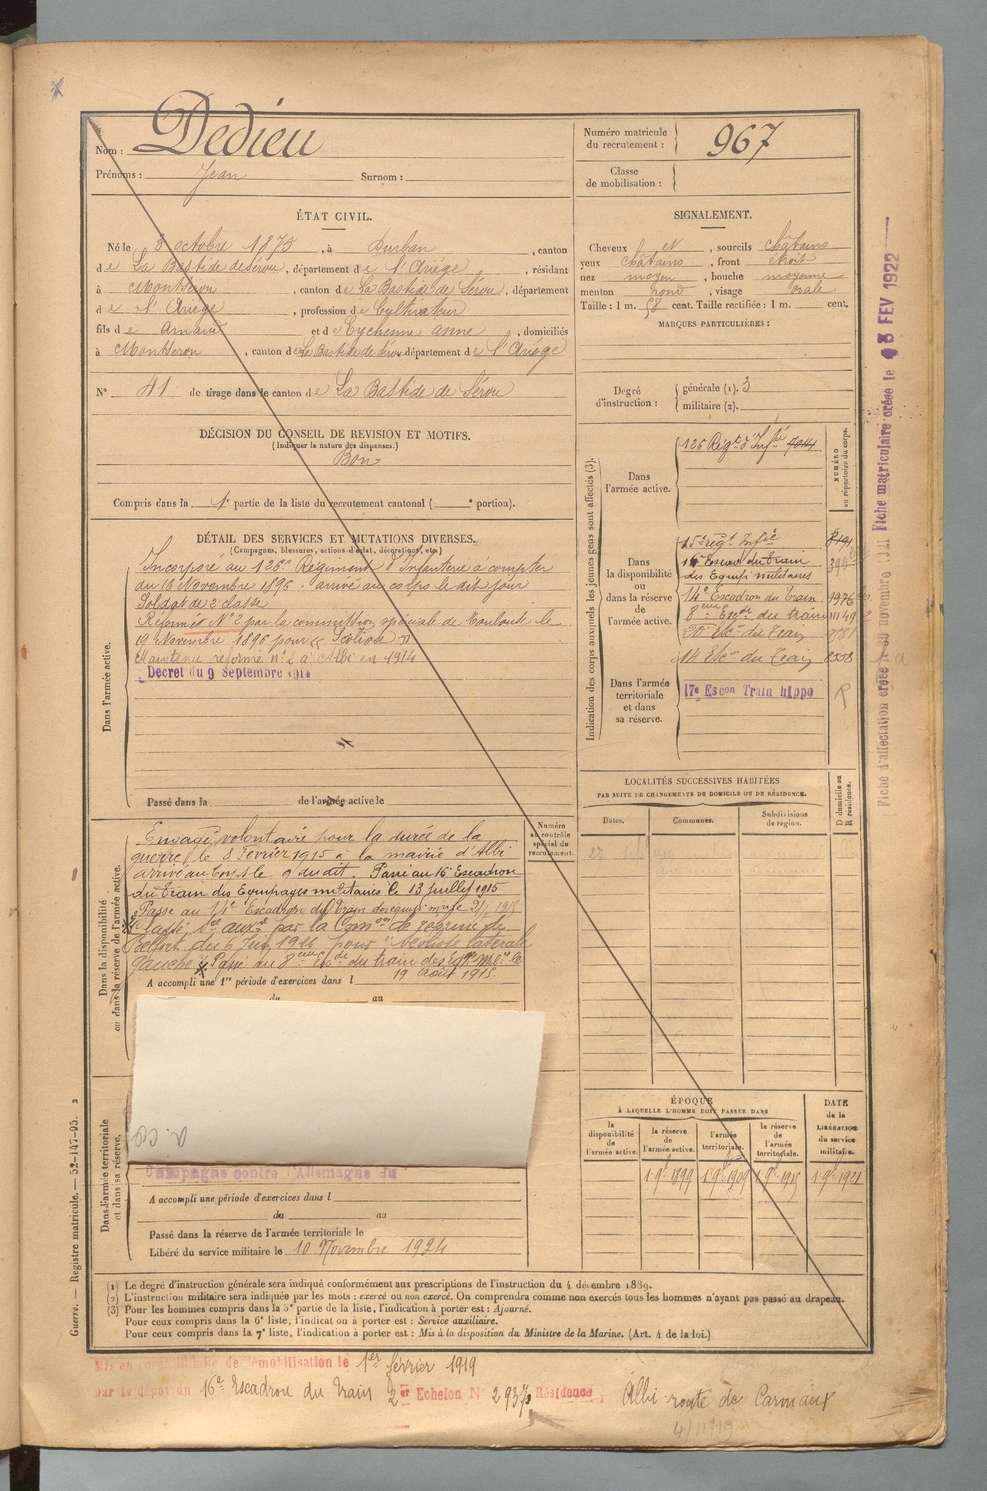 Nom : Dedieu
Prénoms : Jean Surnom :
Numéro matricule du recrutement : 967
Classe de mobilisation :
ÉTAT CIVIL.
Né le 3 octobre 1875, à Durban, canton
de La Bastide de Sérou, département de l'Ariége, résidant
à Montseron, canton de La Bastide de Sérou, département
de l'Ariége, profession de Cultivateur
fils de Arnaud et de Eychenne Anne, domiciliés
à Montseron, canton de La Bastide de Sérou département de l'Ariége
N° 41 de tirage dans le canton de La Bastide de Sérou
SIGNALEMENT.
Cheveux et, sourcils châtains
yeux châtains, front étroit
nez moyen, bouche moyenne
menton rond, visage ovale
Taille : 1 m. 58 cent. Taille rectifiée : 1 m. cent.
MARQUES PARTICULIÈRES :
Degré d'instruction : générale (1). 3
militaire (2).
DÉCISION DU CONSEIL DE REVISION ET MOTIFS.
(Indiquer la nature des dispenses.)
Bon
Compris dans la 1e partie de la liste du recrutement cantonal ( e portion).
DÉTAIL DES SERVICES ET MUTATIONS DIVERSES.
(Campagnes, blessures, actions d'éclat, décorations, etc.)
Dans l'armée active.
Incorporé au 126e Régiment d'Infanterie à compter
du 16 Novembre 1896. arrivé au corps le dit jour
Soldat de 2e classe
Réformé N° 2 par la commission spéciale de Toulouse le
19 Novembre 1896 pour
Maintenu réformé n° 2 à Albi en 1914
Décret du 9 Septembre 1914
Passé dans la de l'armée active le
Dans la disponibilité ou dans la réserve de l'armée active.
Engagé volontaire pour la durée de la
guerre, le 8 Février 1915 à la mairie d'Albi
arrivé au Corps le 9 du dit. Passé au 16e Escadron
du Train des Equipages militaires le 13 juillet 1915
Passé au 14e Escadron du Train des équip. mres le
Classé Sce auxre par la Comon de réforme de
du 6 Juin 1916 pour "Scoliose latérale
gauche". Passé au 8eme Esc. du train des Eq. le
19 Août 1918.
A accompli une 1re période d'exercices dans l
du au
Numéro au contrôle spécial du recrutement.
Indication des corps auxquels les jeunes gens sont affectés (3).
Dans l'armée active.
126 Régt d'Infie
NUMÉRO au répertoire du corps.
Dans la disponibilité ou dans la réserve de l'armée active.
15e régt Infie
16e Escad. du Train
des Equip. militaires
14e Escadron du Train 1976
8eme Esc. du train 11149
20e Esc. du Train
14 Esc. du Train 8558
Dans l'armée territoriale et dans sa réserve.
17e Escon Train hippo
LOCALITÉS SUCCESSIVES HABITÉES
PAR SUITE DE CHANGEMENTS DE DOMICILE OU DE RÉSIDENCE.
Dates. Communes. Subdivisions de région. D domicile ou R résidence.
Dans l'armée territoriale et dans sa réserve.
Campagne contre l'Allemagne du
A accompli une période d'exercices dans l
du au
Passé dans la réserve de l'armée territoriale le
Libéré du service militaire le 10 Novembre 1924
ÉPOQUE
À LAQUELLE L'HOMME DOIT PASSER DANS
la disponibilité de l'armée active. la réserve de l'armée active. l'armée territoriale. la réserve de l'armée territoriale.
DATE de la LIBÉRATION du service militaire.
1 9bre 1899 1 9bre 1909 1 9bre 1915 1 9bre 1921
(1) Le degré d'instruction générale sera indiqué conformément aux prescriptions de l'instruction du 4 décembre 1889.
(2) L'instruction militaire sera indiquée par les mots : exercé ou non exercé. On comprendra comme non exercés tous les hommes n'ayant pas passé au drapeau.
(3) Pour les hommes compris dans la 5e partie de la liste, l'indication à porter est : Ajourné.
Pour ceux compris dans la 6e liste, l'indication à porter est : Service auxiliaire.
Pour ceux compris dans la 7e liste, l'indication à porter est : Mis à la disposition du Ministre de la Marine. (Art. 4 de la loi.)
Mis en congé illimité de démobilisation le 1er février 1919
par le dépôt du 16e Escadron du Train 2e Echelon N° 2937 Résidence : Albi route de Carmaux
Guerre. — Registre matricule. — 52-147-95. 2
Fiche matriculaire créée le 13 FEV 1922
Fiche d'affectation créée le novembre